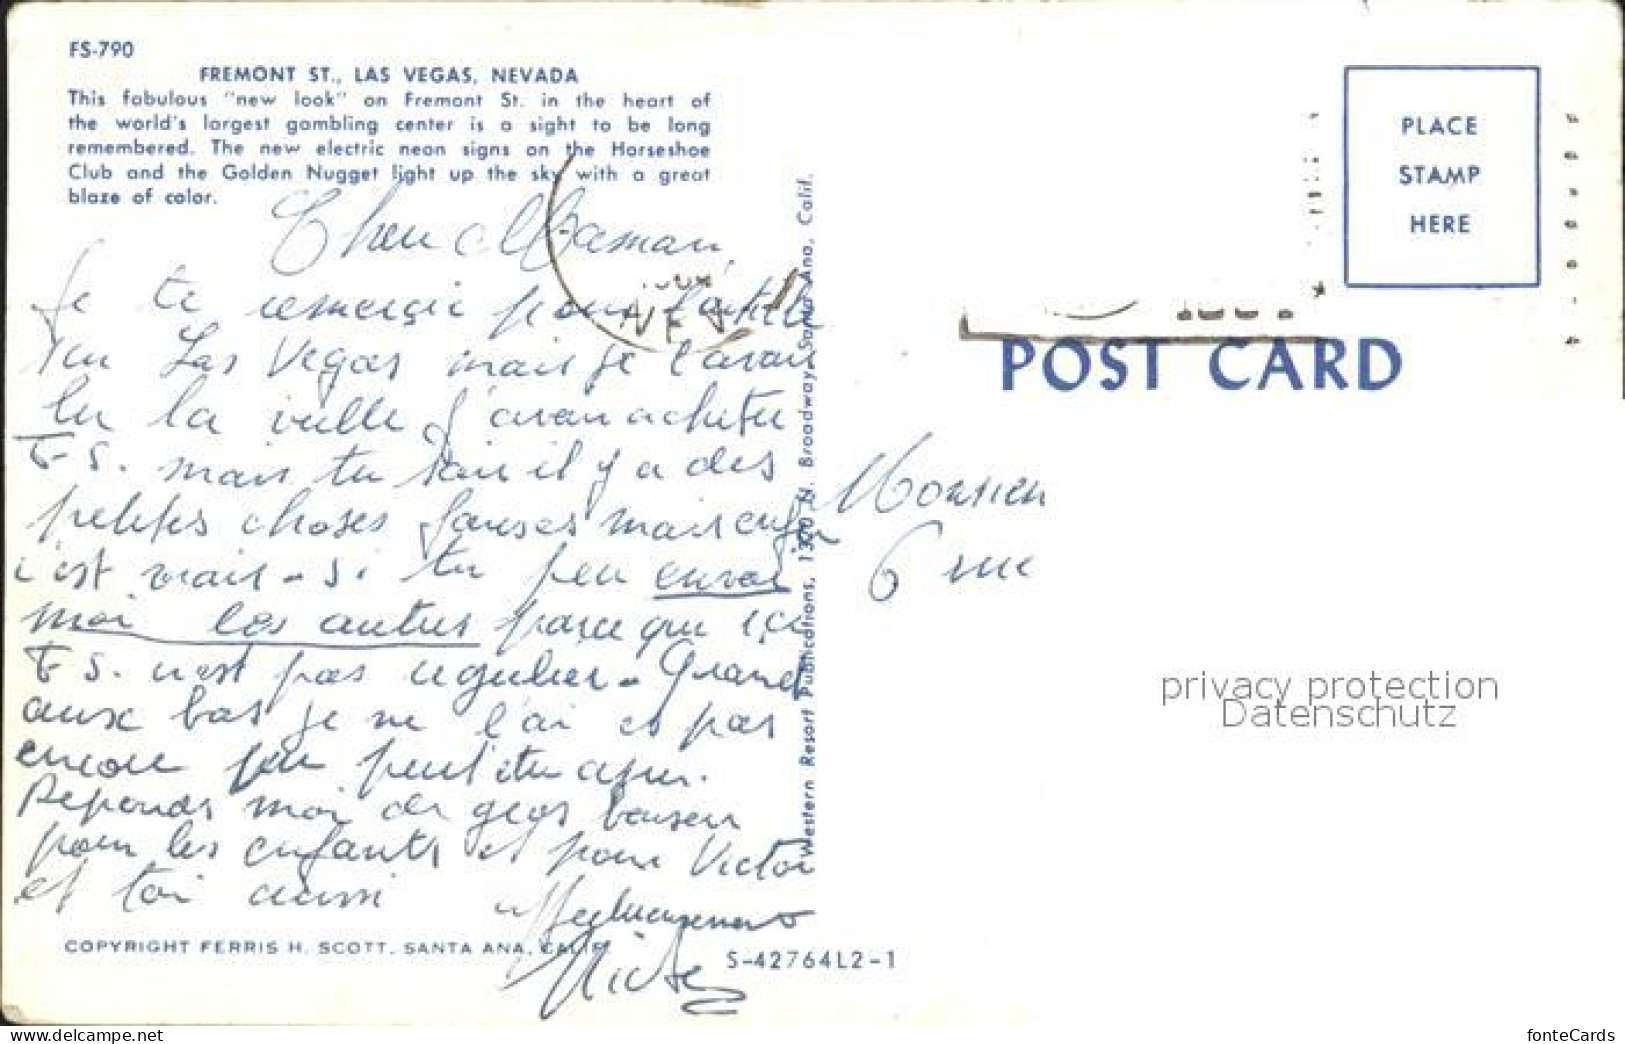 FS-790
FREMONT ST., LAS VEGAS, NEVADA
This fabulous "new look" on Fremont St. in the heart of
the world's largest gambling center is a sight to be long
remembered. The new electric neon signs on the Horseshoe
Club and the Golden Nugget light up the sky with a great
blaze of color.
Maman,
Je te remercie pour l'article
sur Las Vegas mais je l'avais
lu la veille j'avais acheté
F-S. mais tu sais il y a des
petites choses fauses mais enfin
c'est vrais - si tu peu envoi
moi les autres parce que ici
F S. n'est pas regulier - Grand
aux bas je ne l'ai es pas
encore peut etre
Reponds moi de gros baisers
pour les enfants et pour Victor
et toi aussi
Affectueusement
COPYRIGHT FERRIS H. SCOTT, SANTA ANA, CALIF.
S-42764L2-1
Western Resort Publications, 1300 N. Broadway, Santa Ana, Calif.
NEV
PLACE
STAMP
HERE
POST CARD
Monsieu
6 rue
privacy protection
Datenschutz
© the-saleroom.de
fonteCards